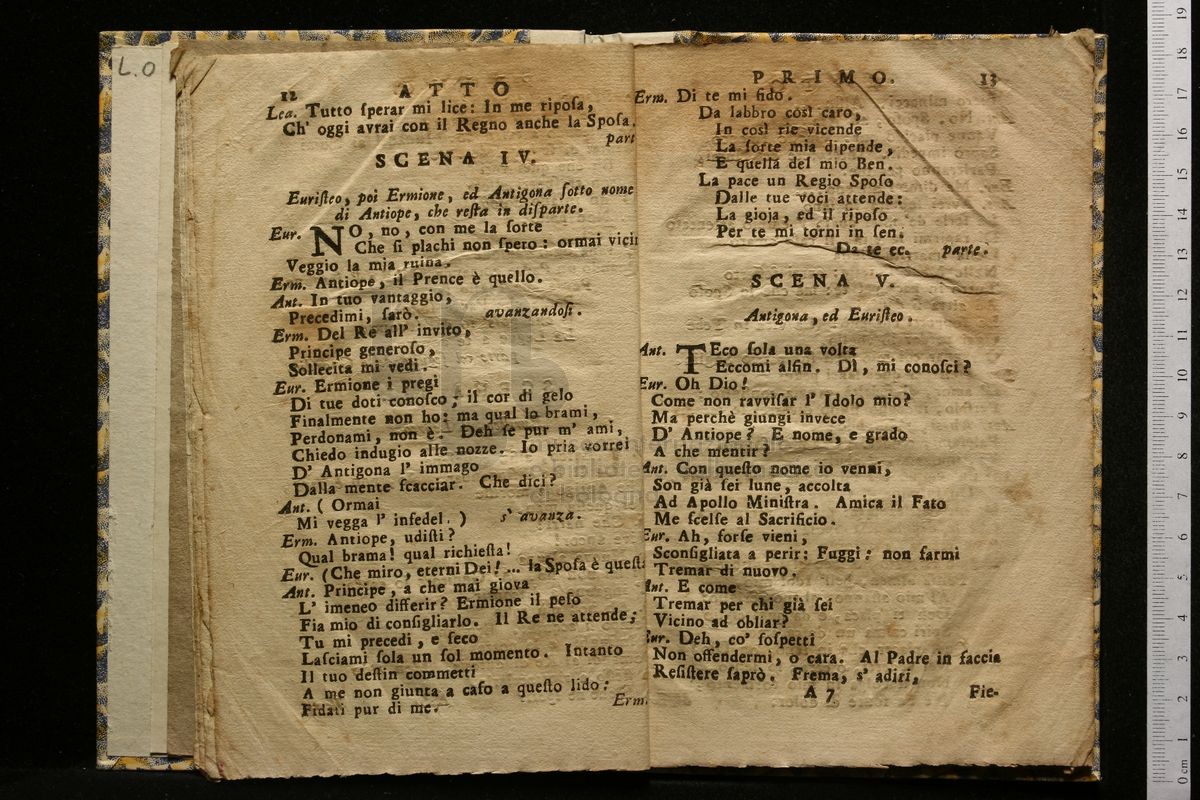 L.O
12 ATTO
Lea. Tutto ſperar mi lice: In me ripoſa,
Ch' oggi avrai con il Regno anche la Spoſa.
part
SCENA IV.
Euriſteo, poi Ermione, ed Antigona ſotto nome
di Antiope, che reſta in diſparte.
Eur. NO, no, con me la ſorte
Che ſi plachi non ſpero: ormai vicin
Veggio la mia ruina.
Erm. Antiope, il Prence è quello.
Ant. In tuo vantaggio,
Precedimi, ſarò. avanzandoſi.
Erm. Del Re all' invito,
Principe generoſo,
Sollecita mi vedi.
Eur. Ermione i pregi
Di tue doti conoſco; il cor di gelo
Finalmente non ho: ma qual lo brami,
Perdonami, non è. Deh ſe pur m' ami,
Chiedo indugio alle nozze. Io pria vorrei
D' Antigona l' immago
Dalla mente ſcacciar. Che dici?
Ant. ( Ormai
Mi vegga l' infedel. ) s' avanza.
Erm. Antiope, udiſti?
Qual brama! qual richieſta!
Eur. (Che miro, eterni Dei! ... la Spoſa è queſt
Ant. Principe, a che mai giova
L' imeneo differir? Ermione il peſo
Fia mio di conſigliarlo. Il Re ne attende;
Tu mi precedi, e ſeco
Laſciami ſola un ſol momento. Intanto
Il tuo deſtin commetti
A me non giunta a caſo a queſto lido:
Fidati pur di me.
Erm.
PRIMO. 13
Erm. Di te mi fido.
Da labbro così caro,
In così rie vicende
La ſorte mia dipende,
E quella del mio Ben.
La pace un Regio Spoſo
Dalle tue voci attende:
La gioja, ed il ripoſo
Per te mi torni in ſen.
Da te ec. parte.
SCENA V.
Antigona, ed Euriſteo.
Ant. TEco ſola una volta
Eccomi alfin. Dì, mi conoſci?
Eur. Oh Dio!
Come non ravviſar l' Idolo mio?
Ma perchè giungi invece
D' Antiope? E nome, e grado
A che mentir?
Ant. Con queſto nome io venni,
Son già ſei lune, accolta
Ad Apollo Miniſtra. Amica il Fato
Me ſcelſe al Sacrificio.
Eur. Ah, forſe vieni,
Sconſigliata a perir: Fuggi: non farmi
Tremar di nuovo.
Ant. E come
Tremar per chi già ſei
Vicino ad obliar?
Eur. Deh, co' ſoſpetti
Non offendermi, o cara. Al Padre in faccia
Reſiſtere ſaprò. Frema, s' adiri,
A 7 Fie-